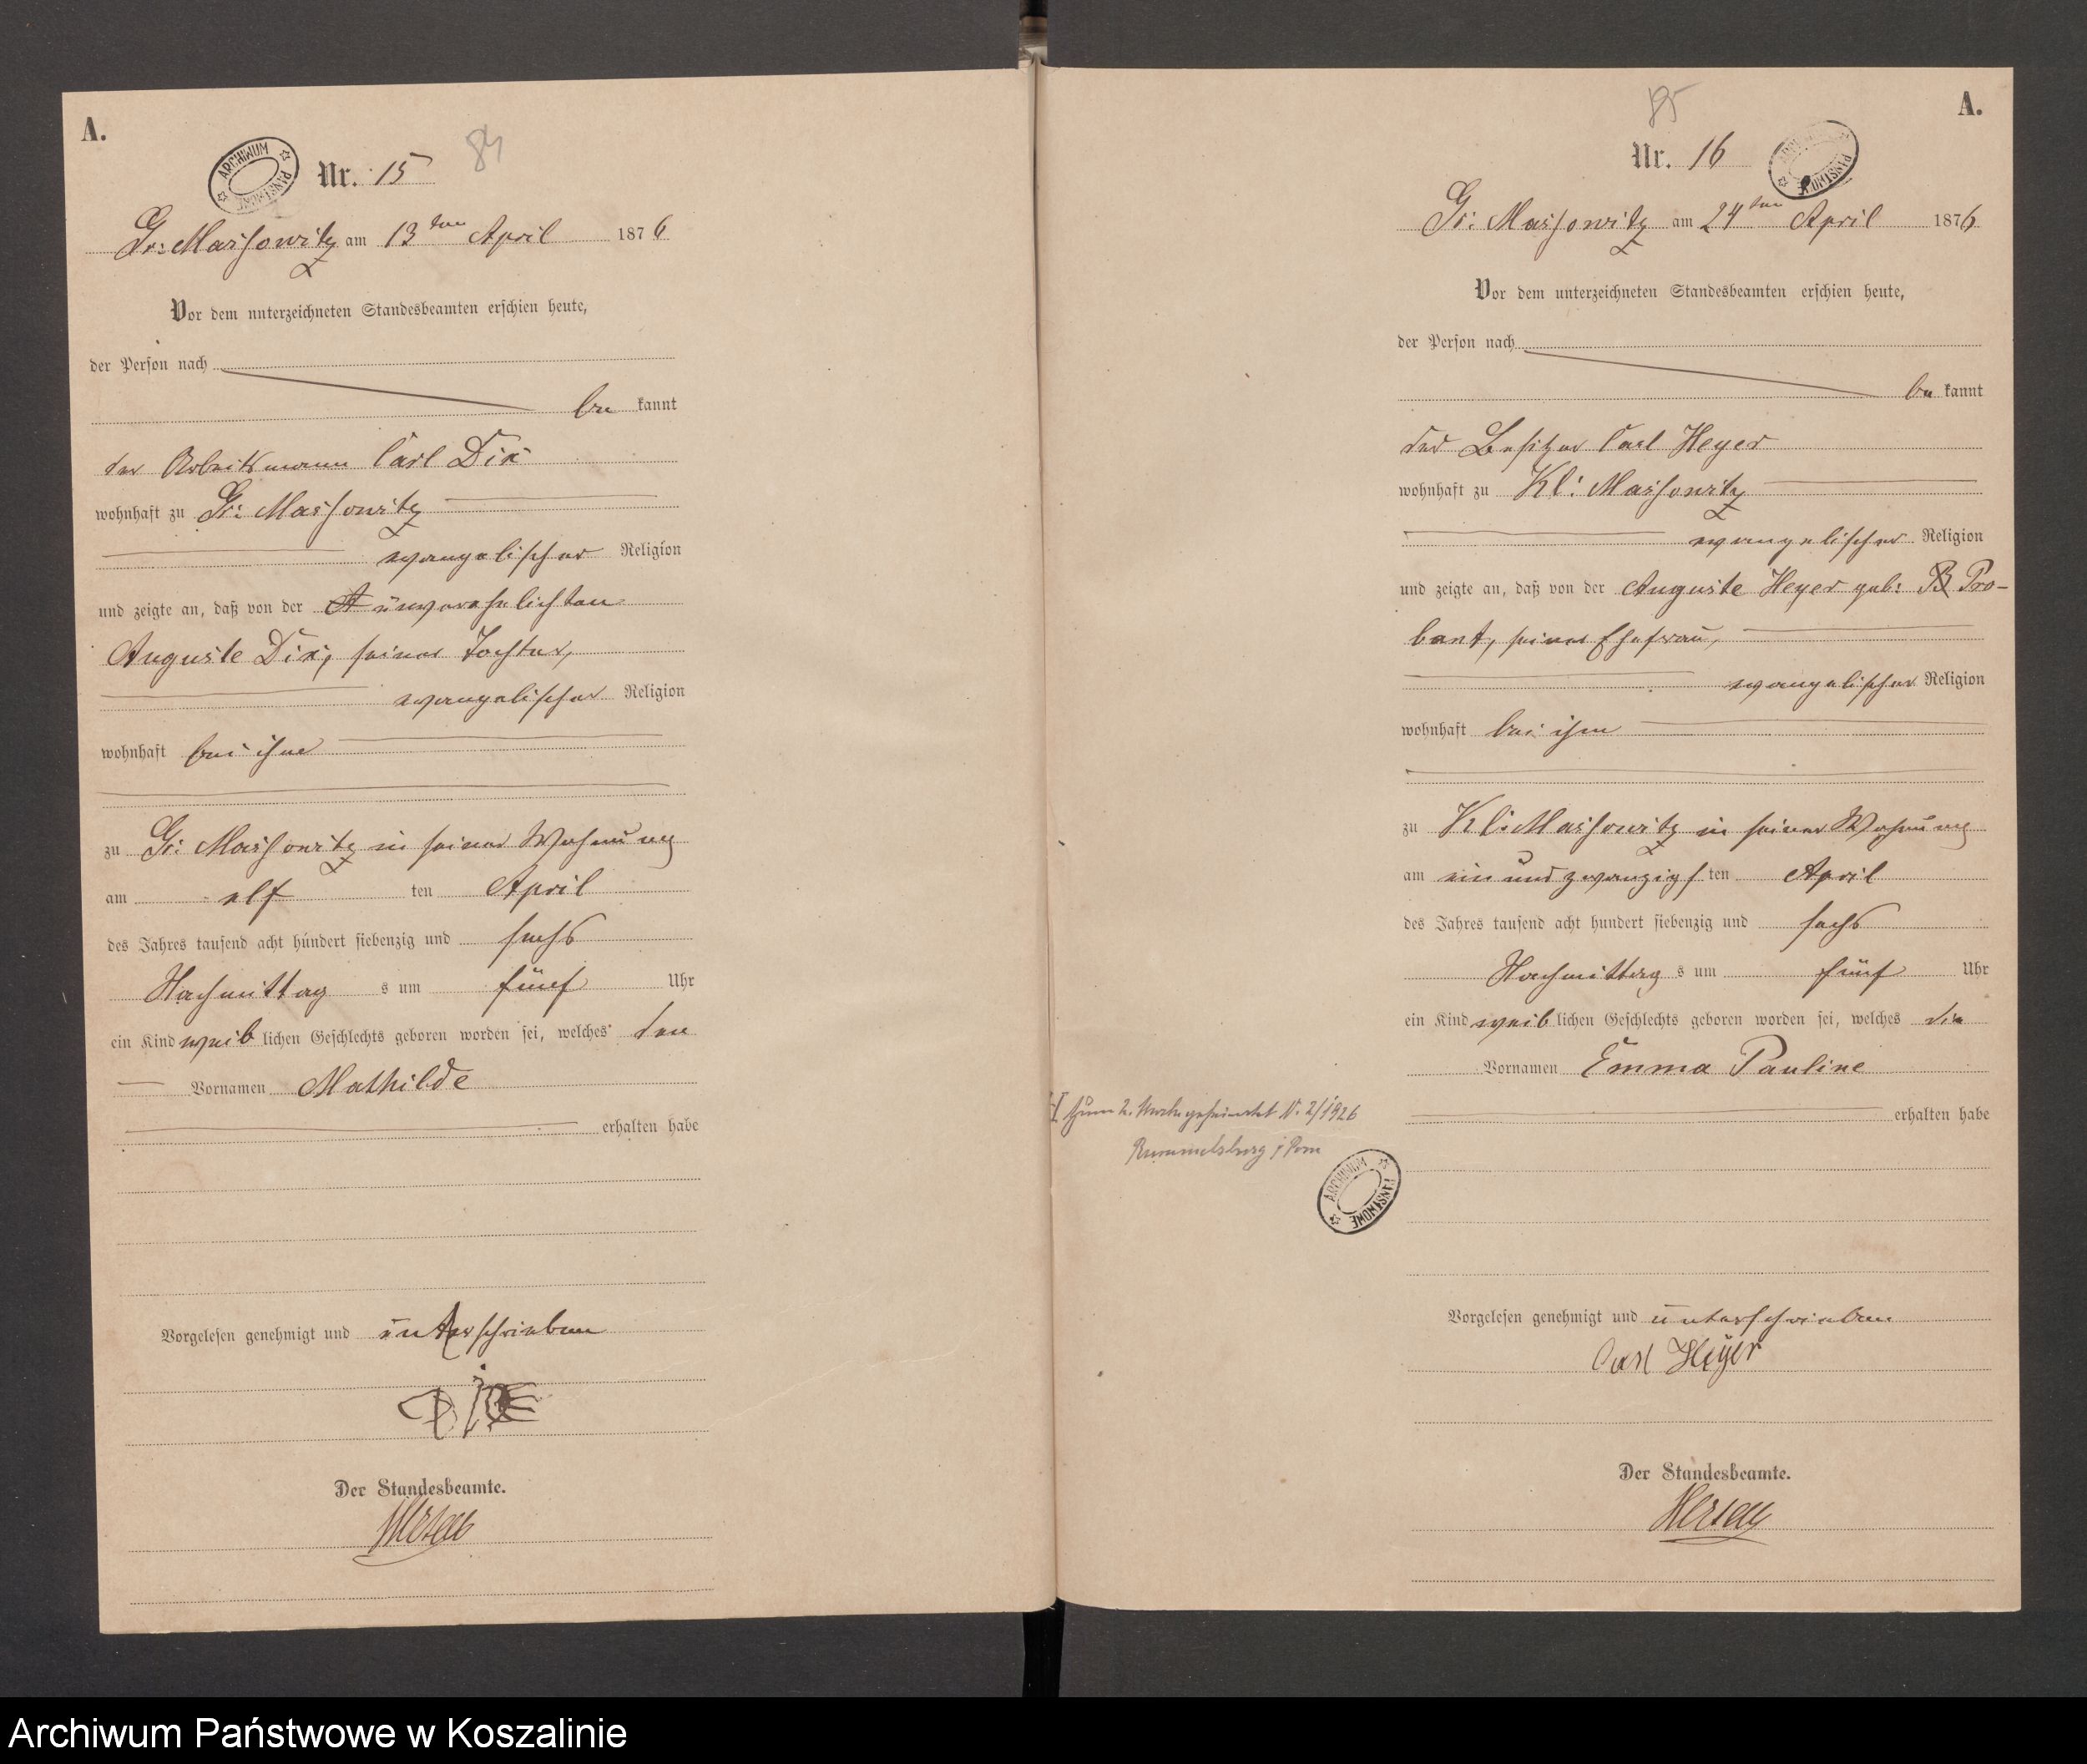 A.
ARCHIWUM PAŃSTWOWE
Nr. 15
84
Gr: Massowitz am 13ten April 1876
Vor dem unterzeichneten Standesbeamten erschien heute,
der Person nach
be kannt
der Arbeitsmann Carl Dix
wohnhaft zu Gr: Massowitz
evangelischer Religion
und zeigte an, daß von der unverehelichten
Auguste Dix, seiner Tochter,
evangelischer Religion
wohnhaft bei ihm
zu Gr: Massowitz in seiner Wohnung
am elf ten April
des Jahres tausend acht hundert siebenzig und sechs
Nachmittag s um fünf Uhr
ein Kind weib lichen Geschlechts geboren worden sei, welches den
Vornamen Mathilde
erhalten habe
Vorgelesen genehmigt und unterschrieben
Der Standesbeamte.
85
A.
Nr. 16
ARCHIWUM PAŃSTWOWE
Gr: Massowitz am 24ten April 1876
Vor dem unterzeichneten Standesbeamten erschien heute,
der Person nach
be kannt
der Besitzer Carl Heyer
wohnhaft zu Kl: Massowitz
evangelischer Religion
und zeigte an, daß von der Auguste Heyer geb: Pro-
bant, seiner Ehefrau,
evangelischer Religion
wohnhaft bei ihm
zu Kl: Massowitz in seiner Wohnung
am ein und zwanzigs ten April
des Jahres tausend acht hundert siebenzig und sechs
Nachmittag s um fünf Uhr
ein Kind weib lichen Geschlechts geboren worden sei, welches die
Vornamen Emma Pauline
erhalten habe
zum 2. Male geheiratet N. 2/1926
Rummelsburg i Pom
ARCHIWUM PAŃSTWOWE
Vorgelesen genehmigt und unterschrieben
Carl Heyer
Der Standesbeamte.
Archiwum Państwowe w Koszalinie